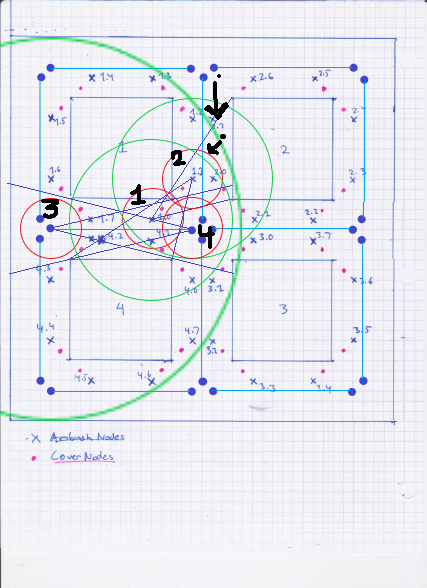 1.4 1.3 2.6 2.5
4.5 2.4
1 2 2
1.6 1.1 2.0 2.3
3 1 1.7 2.1 2.2
4.2 4 3.0 3.7
4.3 4.0 3.1 3.6
4 3
4.4 4.7 3.2 3.5
4.5 4.6 3.3 3.4
- X Ambush Nodes
Cover Nodes